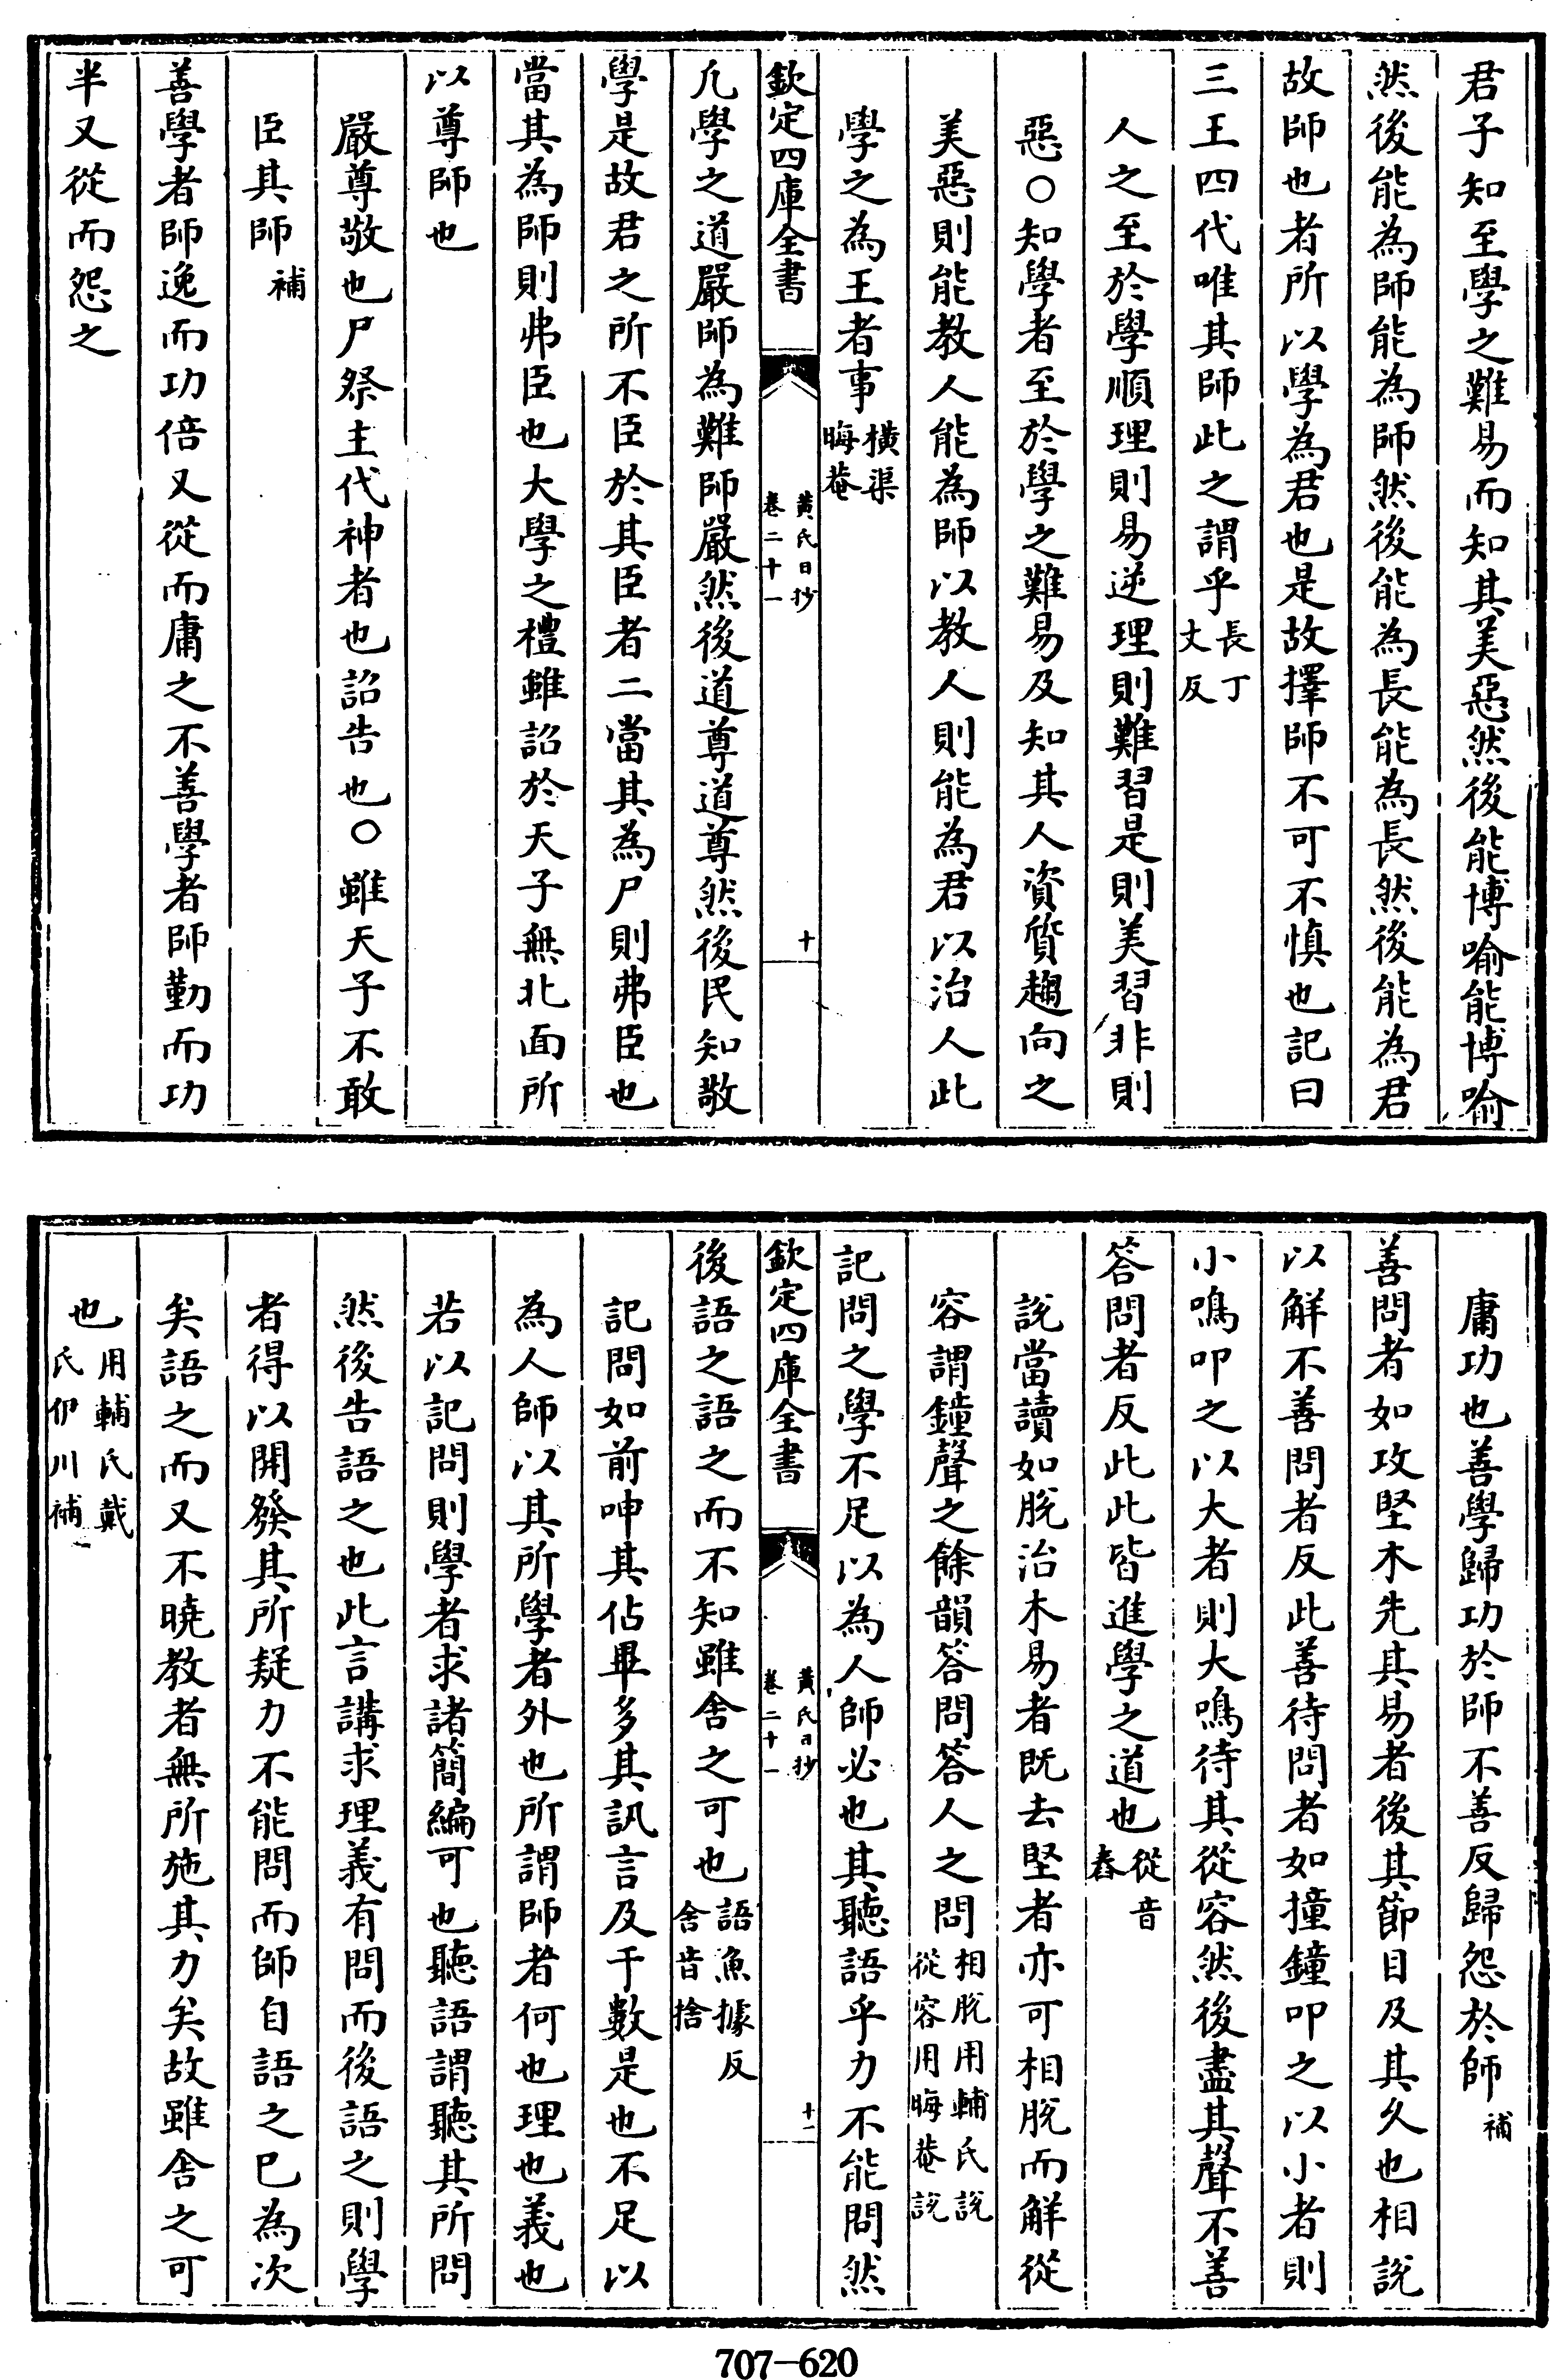 君子知至學之難易而知其美惡然後能博喻能博喻
然後能為師能為師然後能為長能為長然後能為君
故師也者所以學為君也是故擇師不可不慎也記曰
三王四代唯其師此之謂乎長丁丈反
人之至於學順理則易逆理則難習是則美習非則
惡○知學者至於學之難易及知其人資質趨向之
美惡則能教人能為師以教人則能為君以治人此
學之為王者事橫渠晦菴
欽定四庫全書 黃氏日抄卷二十一 十
凢學之道嚴師為難師嚴然後道尊道尊然後民知敬
學是故君之所不臣於其臣者二當其為尸則弗臣也
當其為師則弗臣也大學之禮雖詔於天子無北面所
以尊師也
嚴尊敬也尸祭主代神者也詔告也○雖天子不敢
臣其師補
善學者師逸而功倍又從而庸之不善學者師勤而功
半又從而怨之
庸功也善學歸功於師不善反歸怨於師補
善問者如攻堅木先其易者後其節目及其久也相說
以解不善問者反此善待問者如撞鐘叩之以小者則
小鳴叩之以大者則大鳴待其從容然後盡其聲不善
答問者反此此皆進學之道也從音舂
說當讀如脫治木易者既去堅者亦可相脫而解從
容謂鐘聲之餘韻答問答人之問相脫用輔氏說從容用晦菴說
記問之學不足以為人師必也其聽語乎力不能問然
欽定四庫全書 黃氏日抄卷二十一 十一
後語之語之而不知雖舍之可也語魚據反舍音捨
記問如前呻其佔畢多其訊言及于數是也不足以
為人師以其所學者外也所謂師者何也理也義也
若以記問則學者求諸簡編可也聽語謂聽其所問
然後告語之也此言講求理義有問而後語之則學
者得以開發其所疑力不能問而師自語之已為次
矣語之而又不曉教者無所施其力矣故雖舍之可
也用輔氏戴氏伊川補
707-620